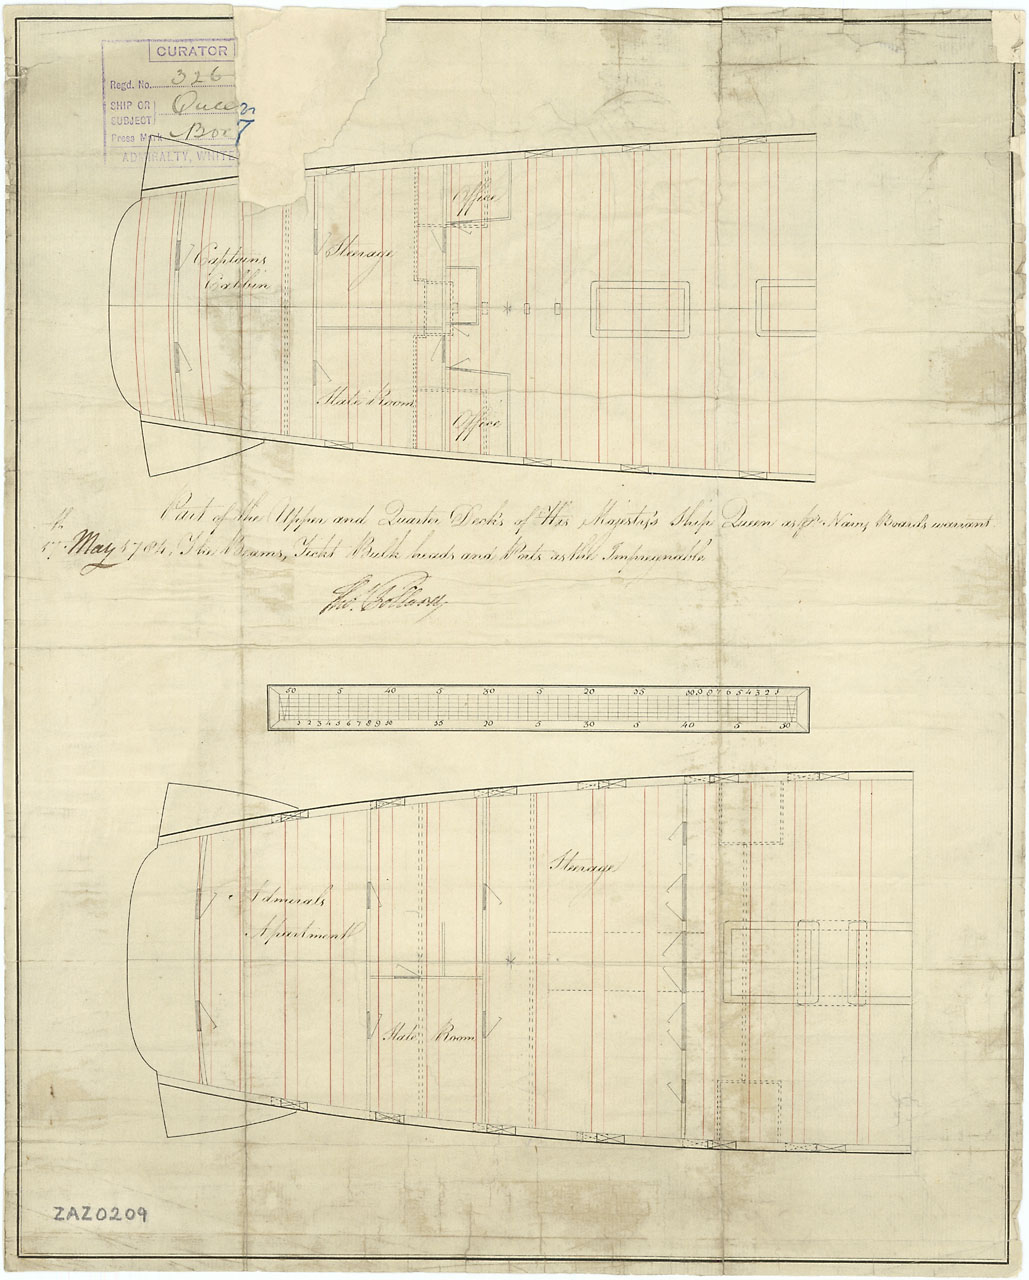 CURATOR
Regd. No. 326
SHIP OR SUBJECT Queen
Press Mark Box 7
ADMIRALTY, WHITE
Office
Captains
Cabbin
Steerage
State Room
Office
Part of the Upper and Quarter Decks of His Majesty's Ship Queen as pr Navy Boards warrant
17th May 1784. The Beams, Bulk heads and Ports as the Impregnable
50 5 40 5 30 5 20 15 10 9 8 7 6 5 4 3 2 1
1 2 3 4 5 6 7 8 9 10 15 20 5 30 5 40 5 50
Steerage
Admirals
Apartment
State Room
ZAZ0209